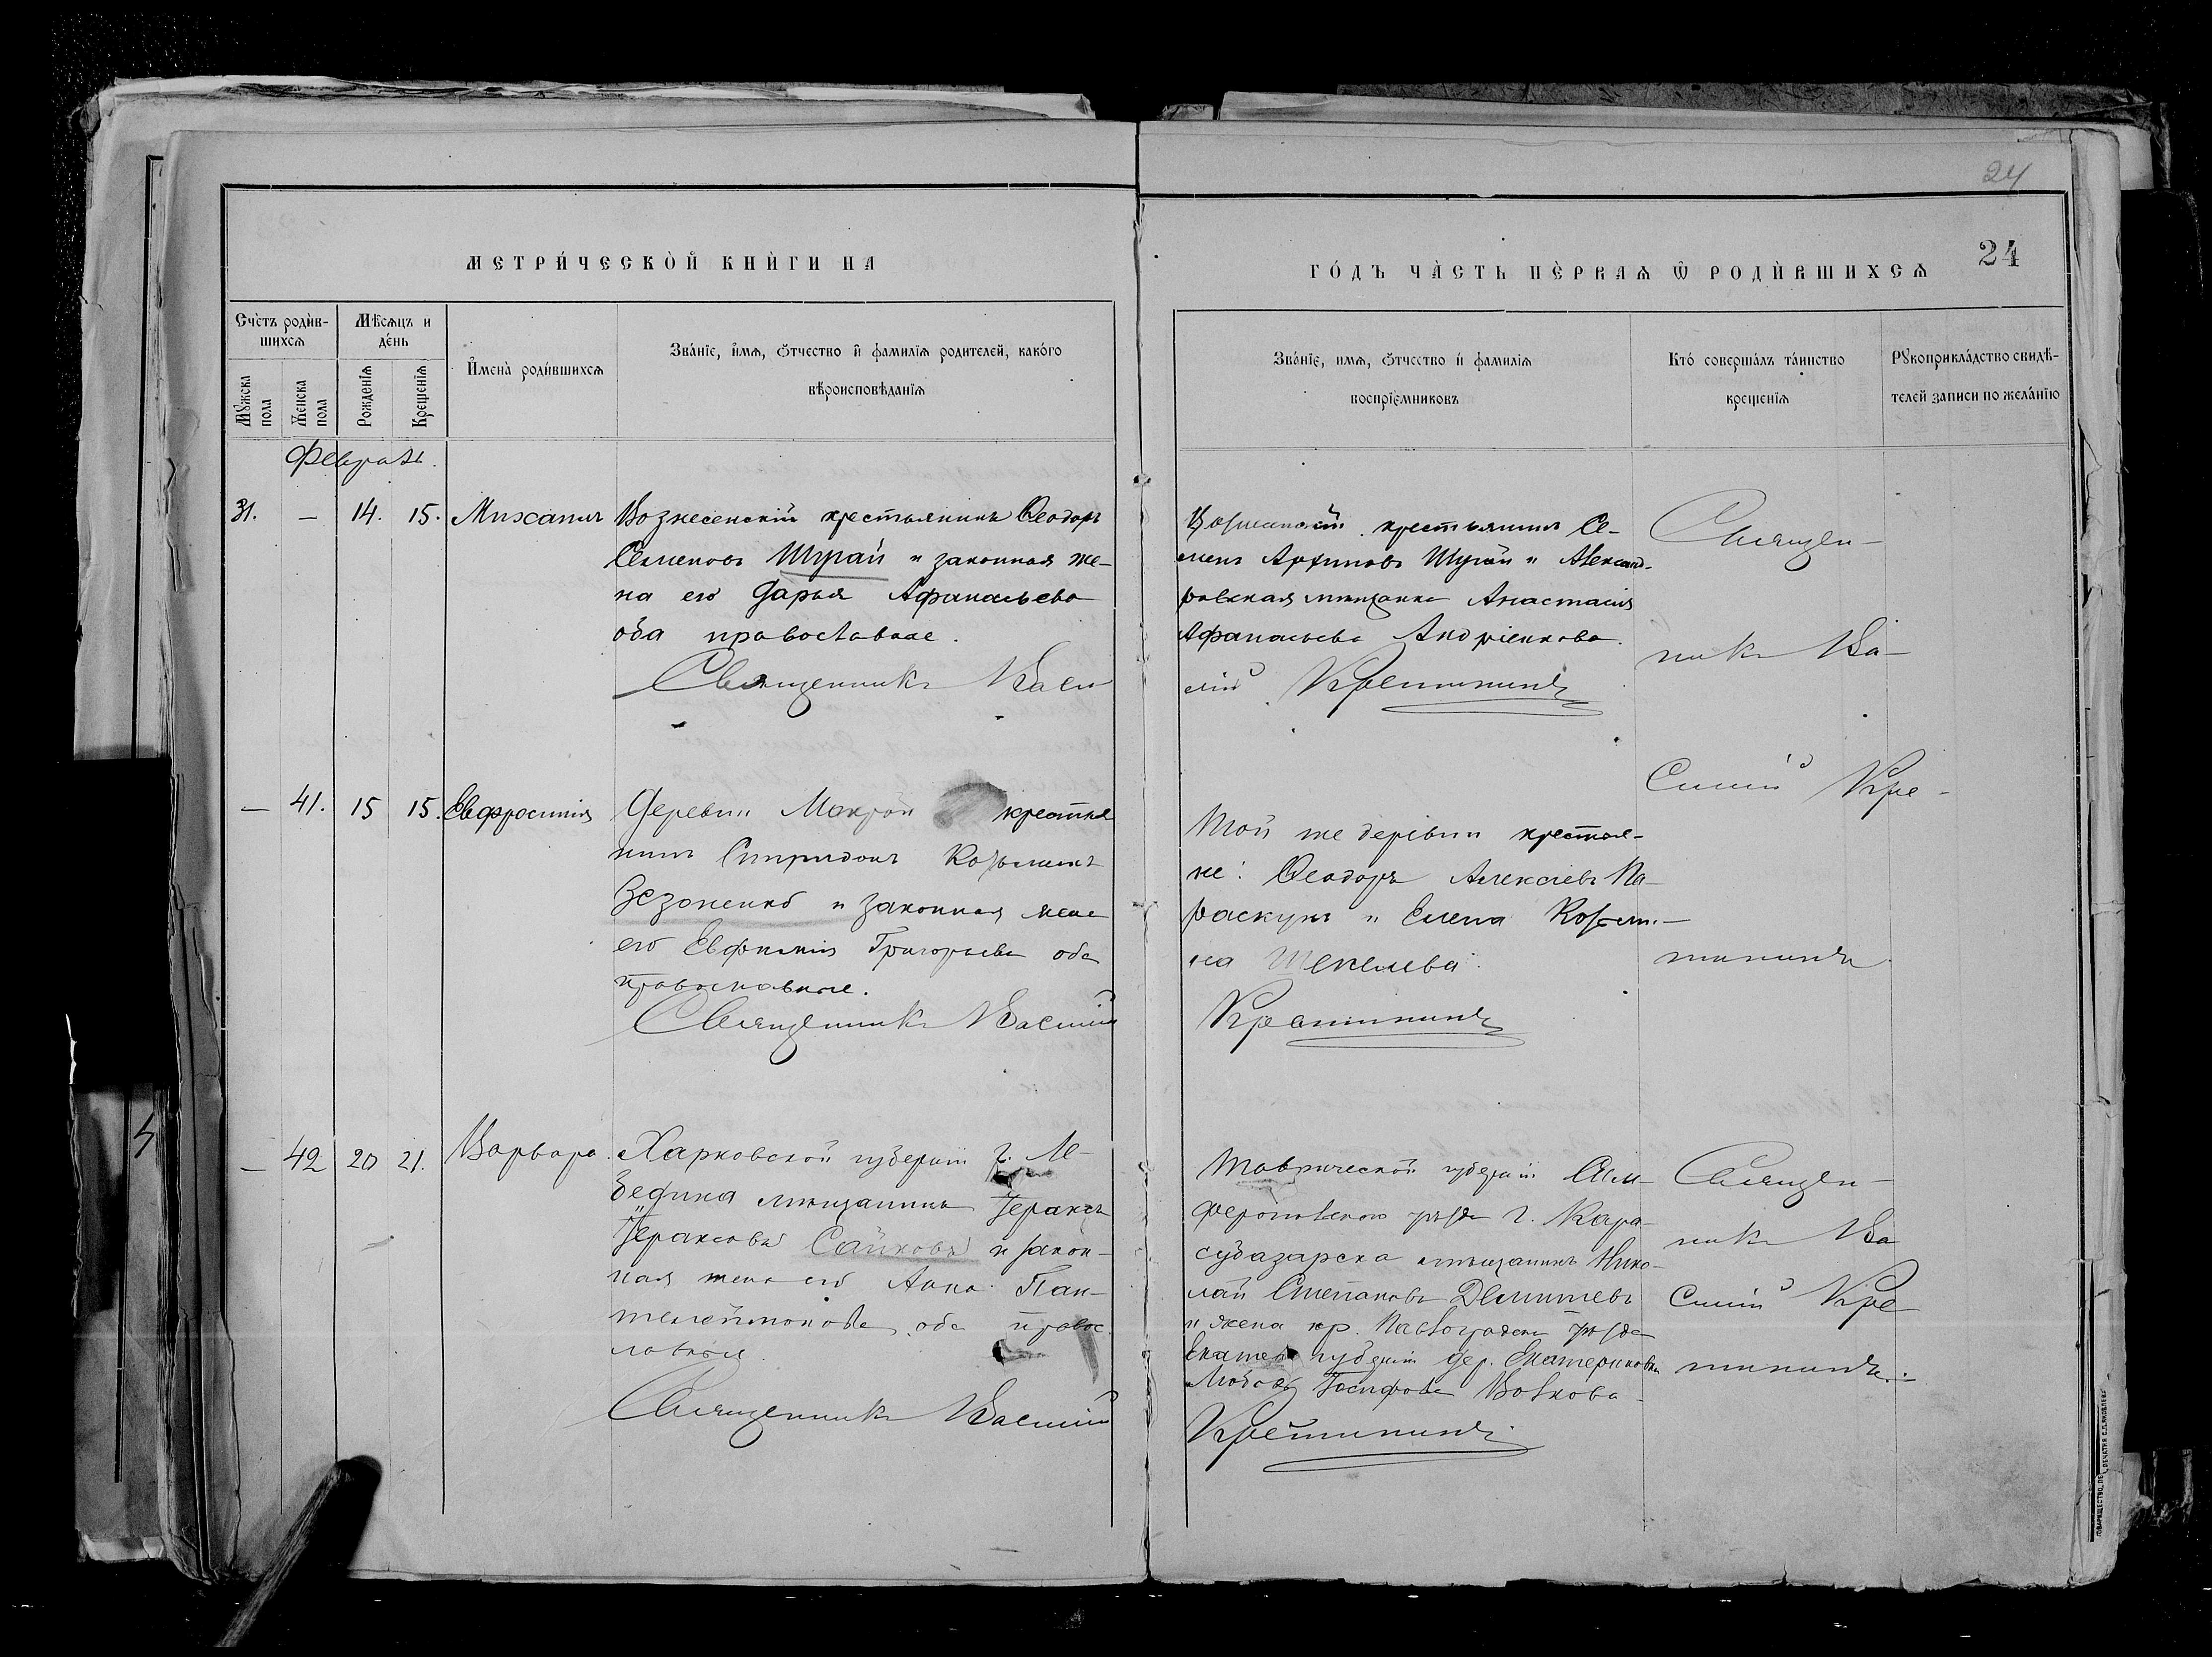 24
24
МЕТРИ́ЧЕСКО̀Й КНЍГИ НА
ГО́ДЪ ЧА̀СТЬ ПЀРВАѦ Ѿ РОДЍВШИХСѦ
Счѐтъ родѝв-
шихсѧ
Мѣ́сѧцъ и
де́нь
Мꙋжска
пола
Женска
пола
Рожденїѧ
Крещенїѧ
И҆мена̀ роди́вшихсѧ
Зва́нїе, и҆мѧ, ѻ҆тчество и҆ фамилїѧ родителей, како́го
вѣроисповѣданїѧ
Зва́нїе, имѧ, ѻ҆тчество и҆ фамилїѧ
воспрїемниковъ
Кто́ соверша́лъ та́инство
крещенїѧ
Рꙋкоприкла́дство свидѣ-
телей записи по жела́нїю
Февраль.
31. — 14. 15. Михаилъ
Вознесенскій крестьянинъ Ѳеодоръ
Семеновъ Шугай и законная же-
на его Дарья Афанасьева
оба православные.
Священникъ Васи
Вознесенскій крестьянинъ Се-
менъ Архиповъ Шугай и Александ-
ровская мѣщанка Анастасія
Афанасьева Андріенкова.
лій Крештининъ
Священ-
никъ Ва-
силій Кре-
штининъ.
— 41. 15 15. Евфросинія
Деревни Мокрой крестья
нинъ Спиридонъ Козьминъ
Зезоненко и законная жена
его Евфимія Григорьева оба
православные.
Священникъ Василій
Той же деревни крестья-
не: Ѳеодоръ Алексіевъ Па-
раскунъ и Елена Козьми-
на Шекелева.
Крештининъ
— 42 20 21. Варвара.
Харковской губерніи г. Ле-
бедина мѣщанинъ Іераксъ
Іераксовъ Сайковъ и закон-
ная жена его Анна Пан-
телеймонова оба правос-
лавные.
Священникъ Василій
Таврической губерніи Сим-
феропольскаго уѣзда г. Кара-
субазарска мѣщанинъ Нико-
лай Степановъ Демишевъ
и жена кр. Павлоградск уѣзда
Екатер губерніи дер. Екатериновки
Любовь Іосифова Волкова.
Крештининъ
Священ-
никъ Ва
силій Кре
штининъ.